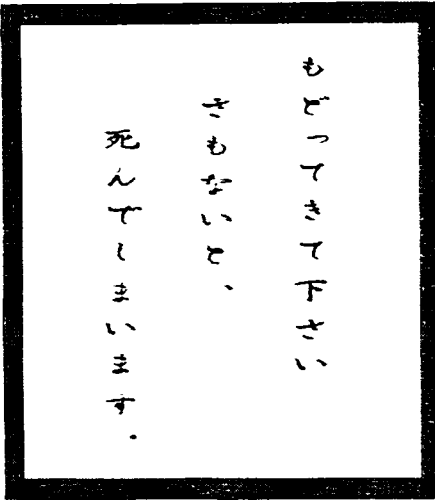 もどってきて下さい
さもないと、
死んでしまいます.